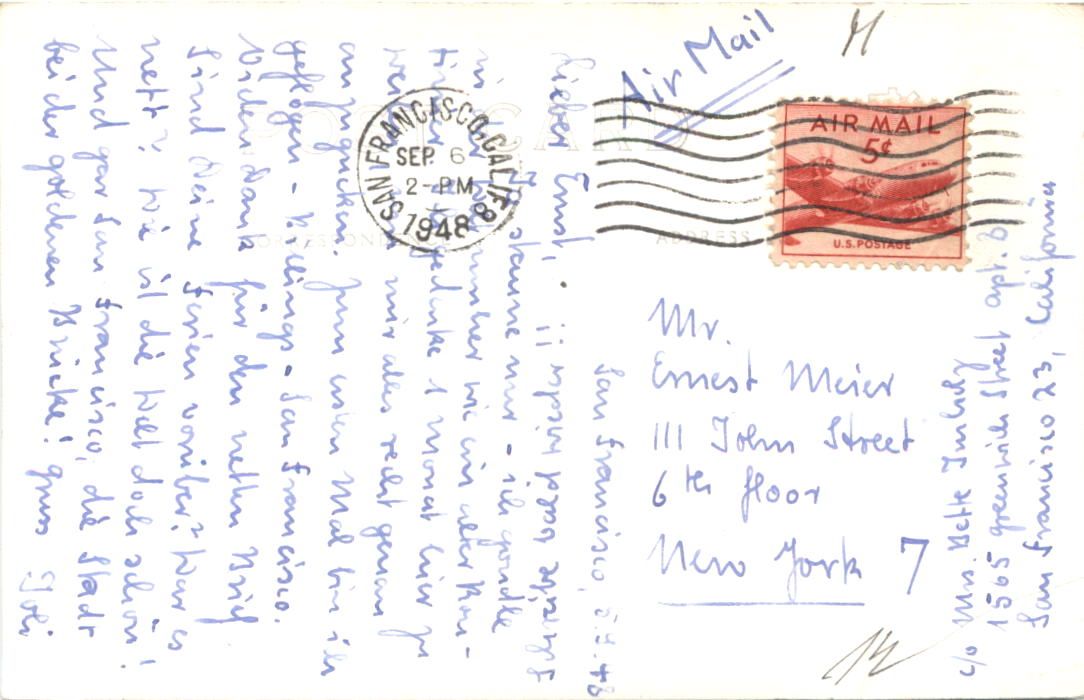 Air Mail
AIR MAIL
5¢
U.S. POSTAGE
SAN FRANCISCO, CALIF.
SEP 6
2-PM
1948
POST CARD
CORRESPONDENCE
ADDRESS
Mr.
Ernest Meier
111 John Street
6th floor
New York 7
c/o Mrs. Bette
1565 Greenwich Street apt. B
San Francisco 23, California
San Francisco, 5.9.48
Lieber Ernst, ii schreibe bald
Stanne nur - ich gondle
in der wie ein alter
hier gedenke 1 Monat hier zu
mir alles recht genau
anzugucken. Zum ersten Mal bin ich
geflogen - - San Francisco.
Vielen Dank für den netten Brief
Sind Deine Ferien vorüber? War es
nett? Wie ist die Welt doch schön!
Und gar San Francisco, die Stadt
bei der goldenen Brücke! gruss